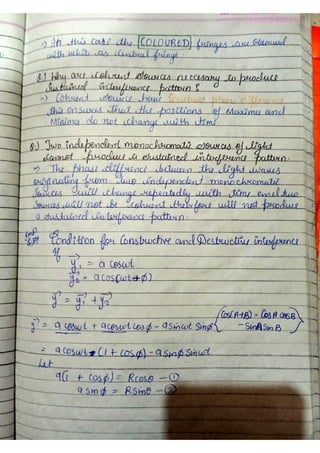 → In this case the COLOURED fringes are observed
with white as central fringe.
Q.1 Why are coherent sources necessary to produce
sustained interference pattern?
→ Coherent source have constant phase difference
this ensures that the positions of Maxima and
Minima do not change with time.
Q.) Two independent monochromatic sources of light
cannot produce a sustained interference pattern.
→ The phase difference between the light waves
originating from two independent monochromatic
sources will change repeatedly with time and two
sources will not be coherent therefore will not produce
a sustained interference pattern.
Condition for Constructive and Destructive interference
If
y₁ = a cosωt
y₂ = a cos(ωt+ϕ)
y = y₁ + y₂
y = a cosωt + a cosωt cosϕ - a sinωt sinϕ {Cos(A+B) = CosA cosB
- SinA sin B}
= a cosωt (1 + cosϕ) - a sinϕ sinωt
Let
a(1 + cosϕ) = R cosθ — ①
a sinϕ = R sinθ — ②